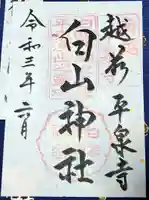 越前 平泉寺
白山神社
令和三年六月